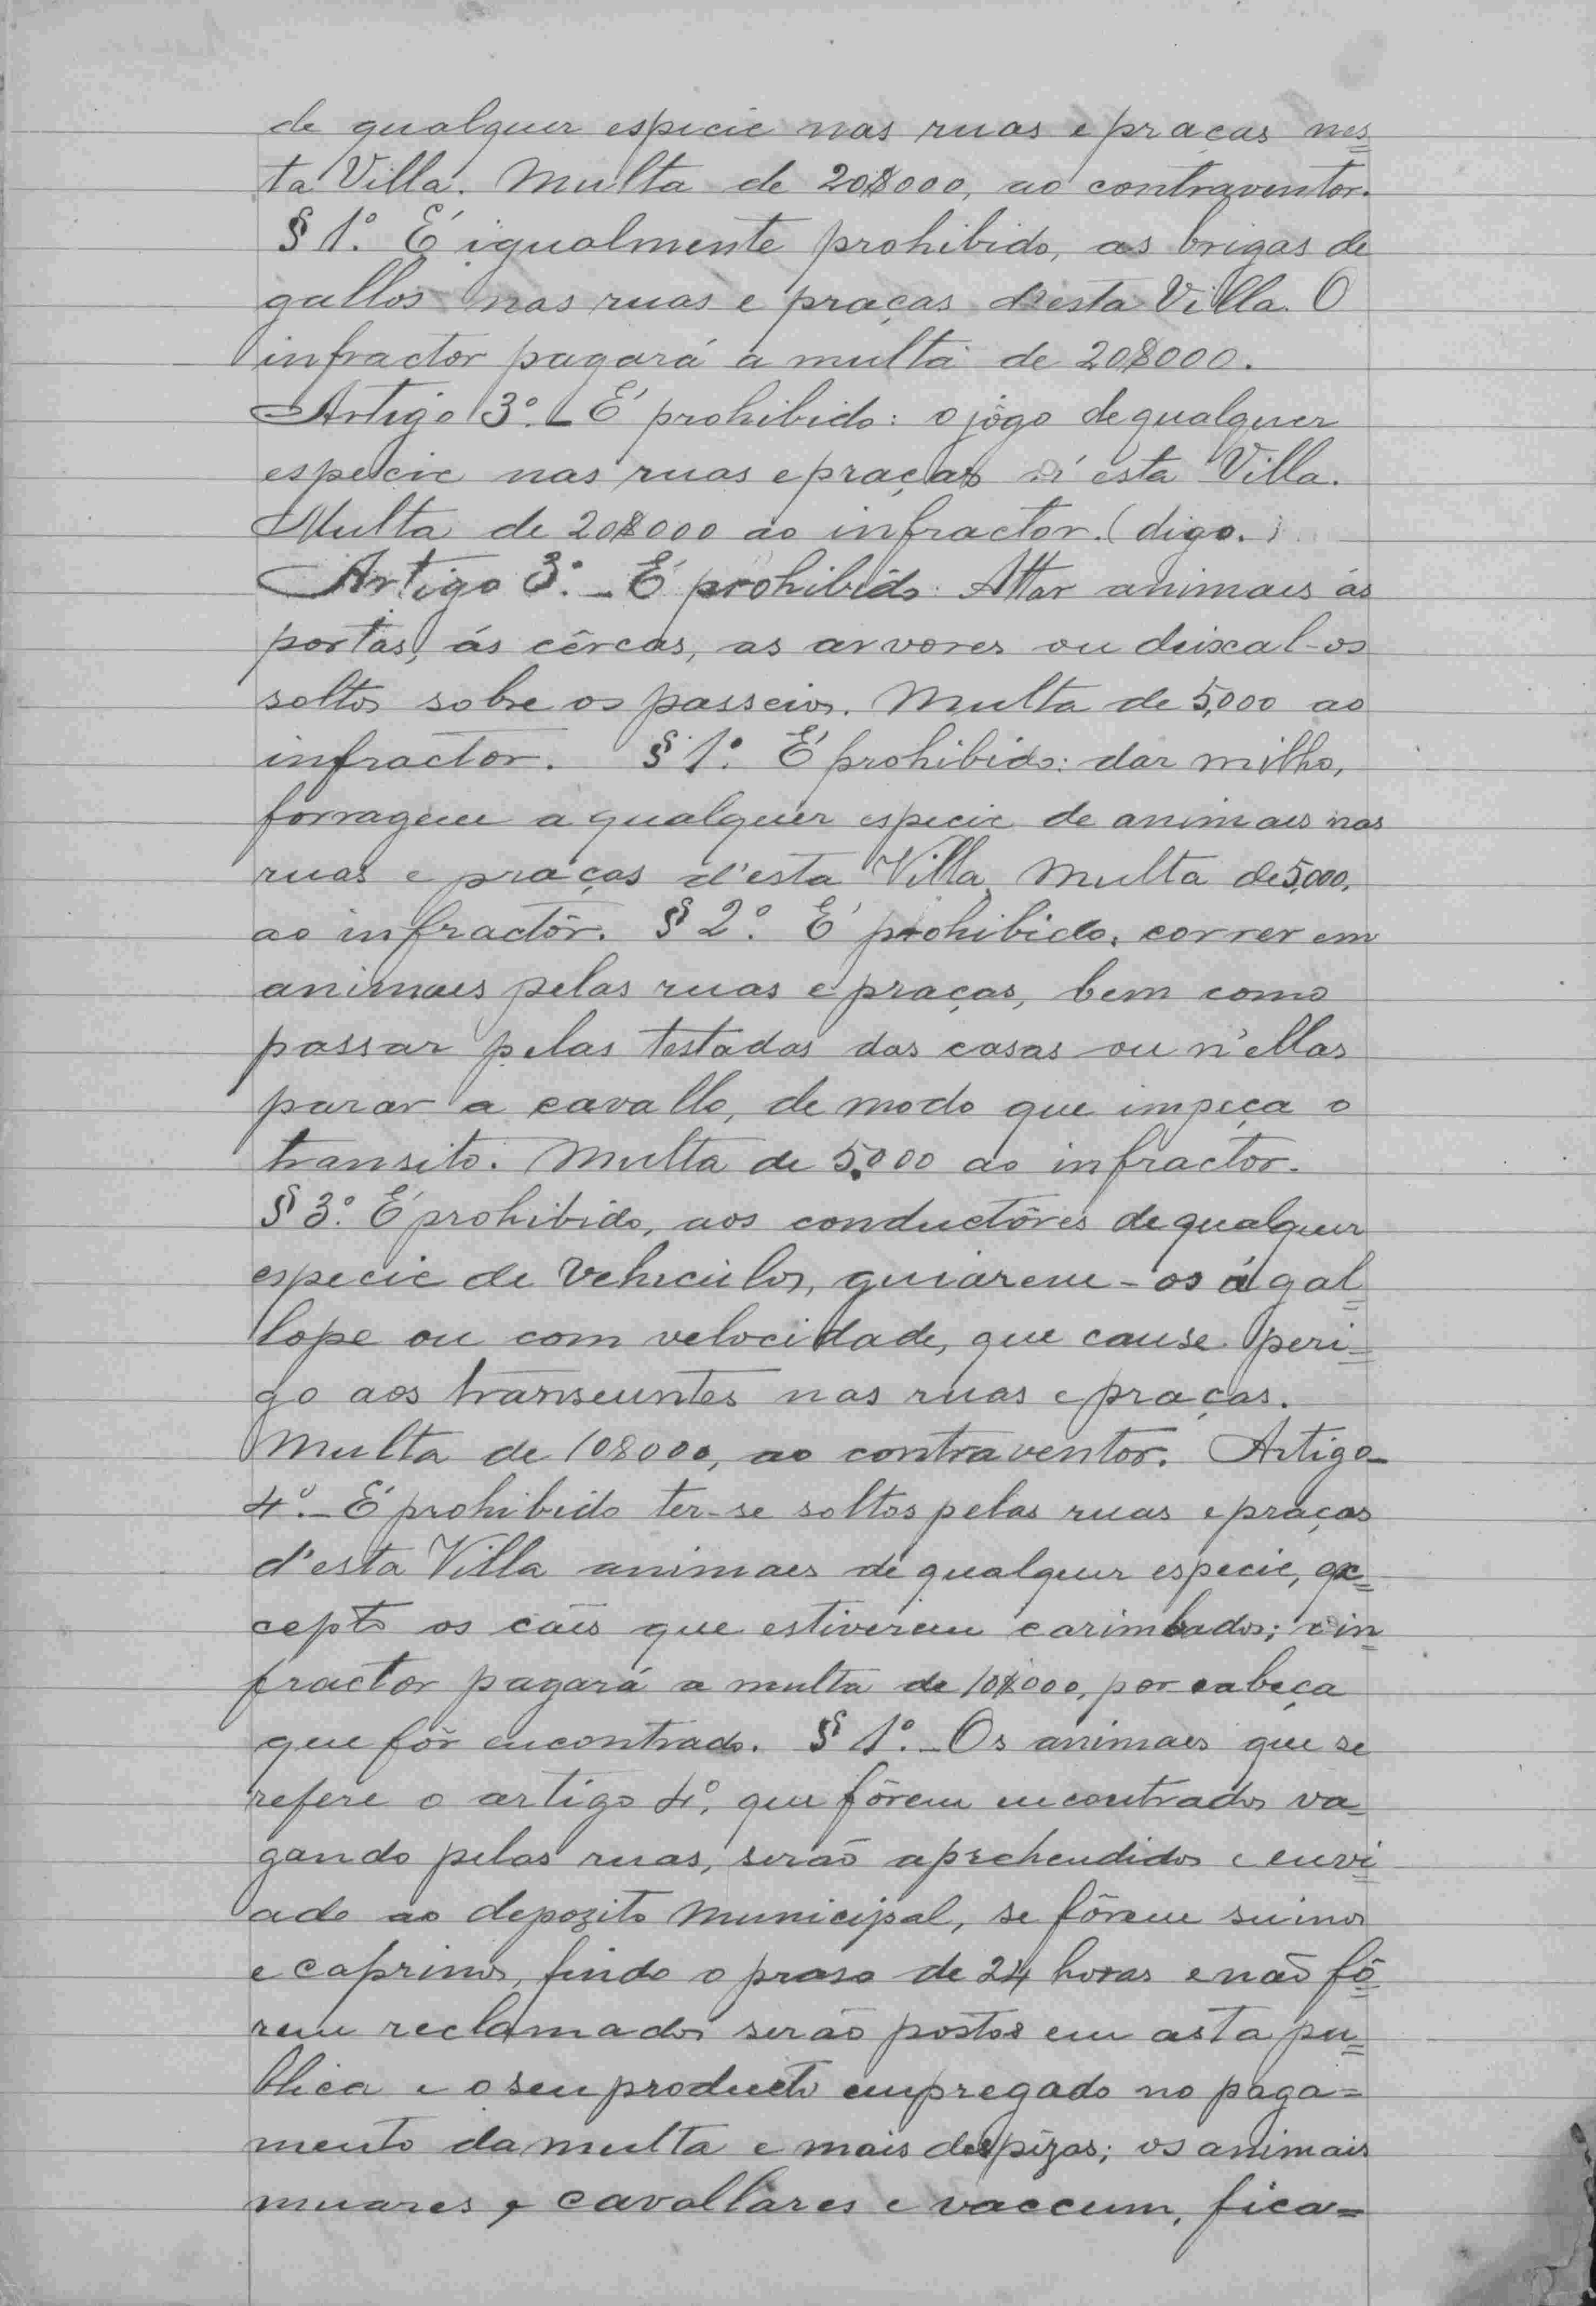 de qualquer especie nas ruas e praças nes=
ta Villa. Multa de 20$000, ao contraventor.
§ 1º. É igualmente prohibido, as brigas de
gallos nas ruas e praças d'esta Villa. O
infractor pagará a multa de 20$000.
Artigo 3º. _ É prohibido: o jôgo de qualquer
especie nas ruas e praças d'esta Villa.
Multa de 20$000 ao infractor. (digo.)
Artigo 3º. _ É prohibido: Attar animaes ás
portas, ás cêrcas, as arvores ou deixal-os
soltos sobre os passeios. Multa de 5,000 ao
infractor. § 1º. É prohibido: dar milho,
forragem a qualquer especie de animaes nas
ruas e praças d'esta Villa. Multa de 5,000.
ao infractôr. § 2º. É prohibido. correr em
animaes pelas ruas e praças, bem como
passar pelas testadas das casas ou n'ellas
parar a cavallo, de modo que impeça o
transito. Multa de 5.000 ao infractor.
§ 3º. É prohibido, aos conductôres de qualquer
especie de vehiculos, guiarem-os á gal=
lope ou com velocidade, que cause peri=
go aos transeuntes nas ruas e praças.
Multa de 10$000, ao contraventor. Artigo_
4º._ É prohibido ter-se soltos pelas ruas e praças
d'esta Villa animaes de qualquer especie, ex=
cepto os cães que estiverem carimbados; o in=
fractor pagará a multa de 10$000, por cabeça
que fôr encontrado. § 1º._ Os animaes que se
refere o artigo 4º, que fôrem encontrados va=
gando pelas ruas, serão aprehendidos e envi=
ado ao depozito Municipal, se fôrem suinos
e caprinos, findo o praso de 24 horas e não fô=
rem reclamados serão postos em asta pu=
blica e o seu producto empregado no paga=
mento da multa e mais despezas; os animais
muares e cavallares e vaccum, fica=